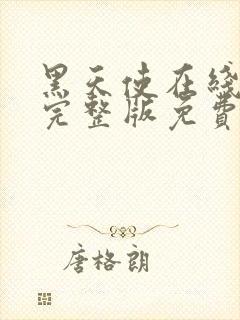 黑天使在线
完整版免費
唐格朗